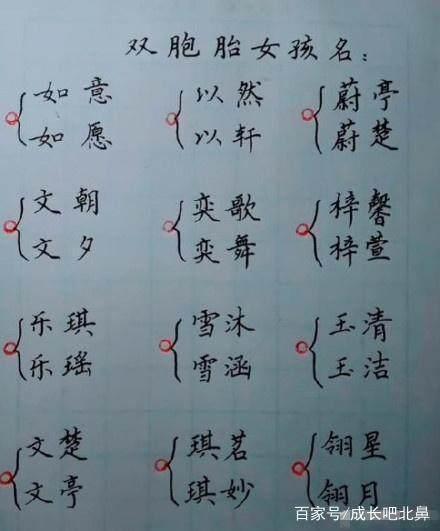 双胞胎女孩名：
如意 以然 蔚亭
如愿 以轩 蔚楚
文朝 奕歌 梓馨
文夕 奕舞 梓萱
乐琪 雪沐 玉清
乐瑶 雪涵 玉洁
文楚 琪茗 翎星
文亭 琪妙 翎月
百家号/成长吧北鼻